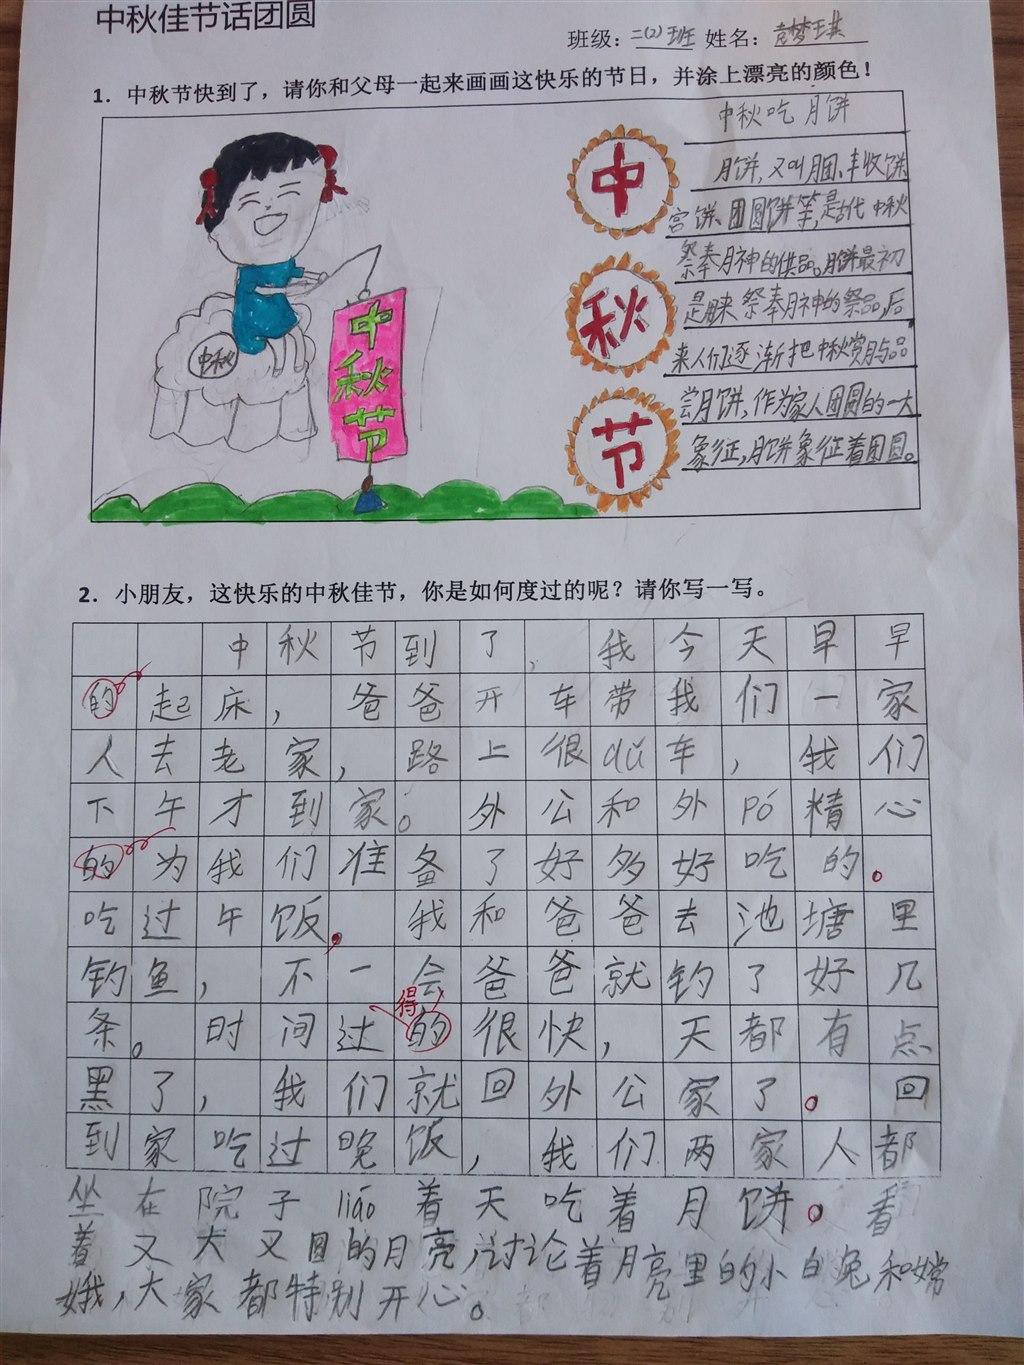 中秋佳节话团圆
班级：二(2)班 姓名：袁梦琪
1. 中秋节快到了，请你和父母一起来画画这快乐的节日，并涂上漂亮的颜色！
中秋吃月饼
中
月饼，又叫月团、丰收饼
宫饼、团圆饼等，是古代中秋
祭奉月神的供品。月饼最初
秋
是用来祭奉月神的祭品，后
来人们逐渐把中秋赏月与品
尝月饼，作为家人团圆的一大
节
象征，月饼象征着团圆。
中秋
中秋节
2. 小朋友，这快乐的中秋佳节，你是如何度过的呢？请你写一写。
中秋节到了，我今天早早
的起床，爸爸开车带我们一家
人去老家，路上很dǔ车，我们
下午才到家。外公和外pó精心
的为我们准备了好多好吃的。
吃过午饭，我和爸爸去池塘里
钓鱼，不一会爸爸就钓了好几
得
条。时间过的很快，天都有点
黑了，我们就回外公家了。回
到家吃过晚饭，我们两家人都
坐在院子liáo着天吃着月饼。看
着又大又圆的月亮，讨论着月亮里的小白兔和嫦
娥，大家都特别开心。